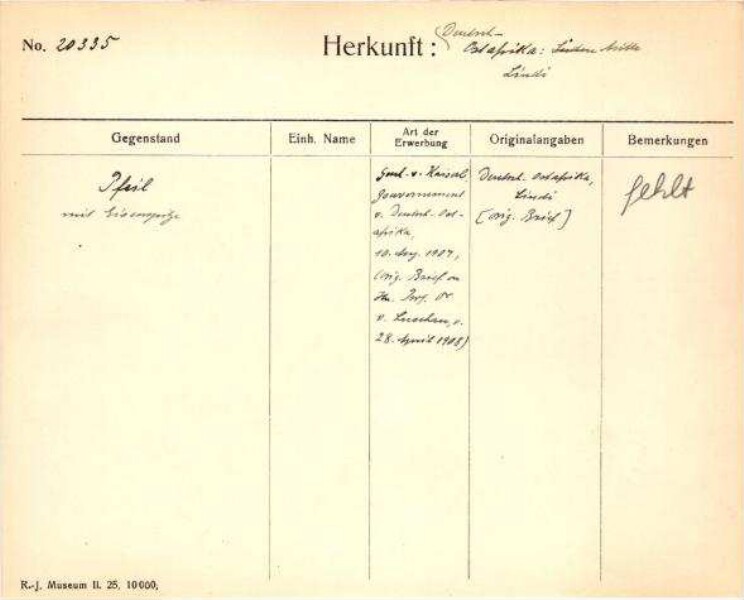 No. 20335
Herkunft: Deutsch-
Ostafrika: Süden Mitte
Lindi
Gegenstand
Einh. Name
Art der
Erwerbung
Originalangaben
Bemerkungen
Pfeil
mit Eisenspitze
v. Kaiserl.
Gouvernement
v. Deutsch-Ost-
afrika,
10. Aug. 1907,
(orig. Brief an
Hn. Prof. Dr
v. Luschan, v.
28. April 1908)
Deutsch. Ostafrika,
Lindi
[orig. Brief]
fehlt
R.-J. Museum II. 25. 10000.